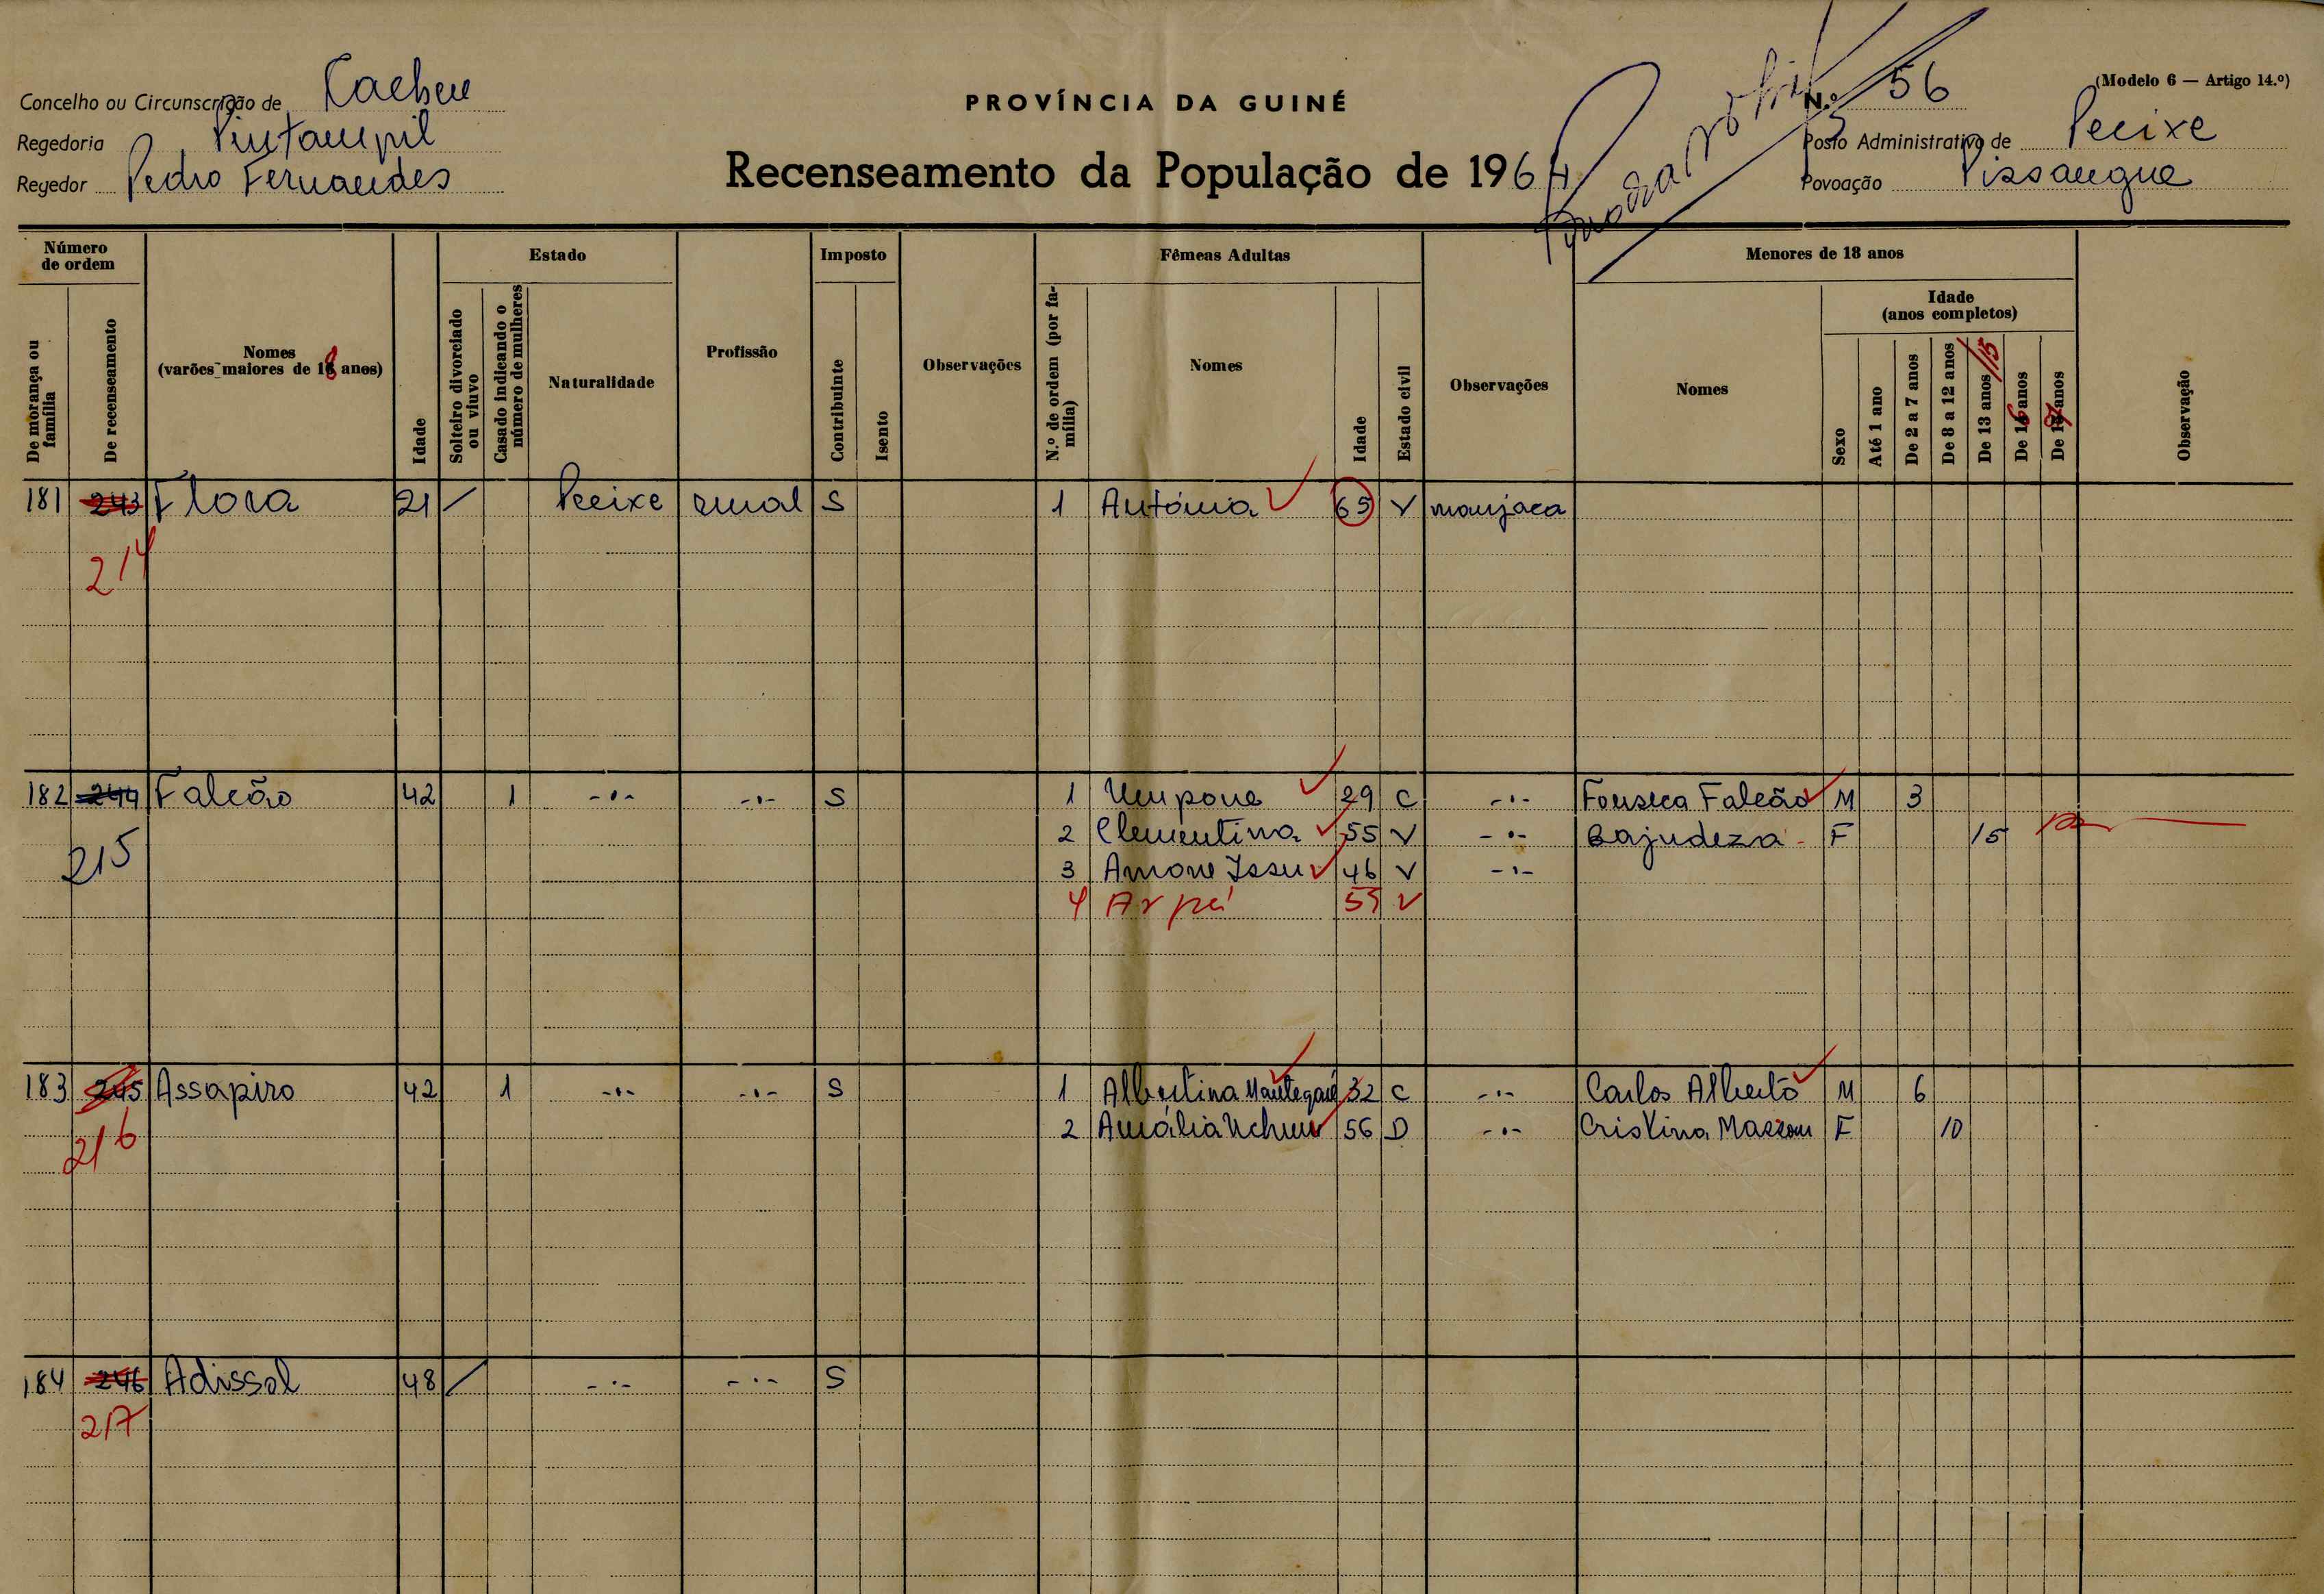 Concelho ou Circunscrição de Cacheu
PROVÍNCIA DA GUINÉ
N.º 56
(Modelo 6 — Artigo 14.º)
Regedoria Pintampil
Posto Administrativo de Pecixe
Regedor Pedro Fernandes
Recenseamento da População de 1964
Povoação Pissangue
Número de ordem
Estado
Imposto
Fêmeas Adultas
Menores de 18 anos
De morança ou família
De recenseamento
Nomes (varões maiores de 18 anos)
Idade
Solteiro divorciado ou viuvo
Casado indicando o número de mulheres
Naturalidade
Profissão
Contribuinte
Isento
Observações
N.º de ordem (por família)
Nomes
Idade
Estado civil
Observações
Nomes
Sexo
Idade (anos completos)
Até 1 ano
De 2 a 7 anos
De 8 a 12 anos
De 13 anos /15
De 16 anos
De 17 anos
Observação
181 243 Flora 21 / Pecixe rural S 1 Antónia 65 V manjaca
214
182 244 Falcão 42 1 -·- -·- S 1 Umpone 29 C -·- Fonseca Falcão M 3
215 2 Clementina 55 V -·- Bajudeza F 15
3 Amone Issu 46 V -·-
4 55 V
183 245 Assapiro 42 1 -·- -·- S 1 Albertina 32 C -·- Carlos Alberto M 6
216 2 Amália 56 D -·- Cristina F 10
184 246 Adissol 48 / -·- -·- S
217